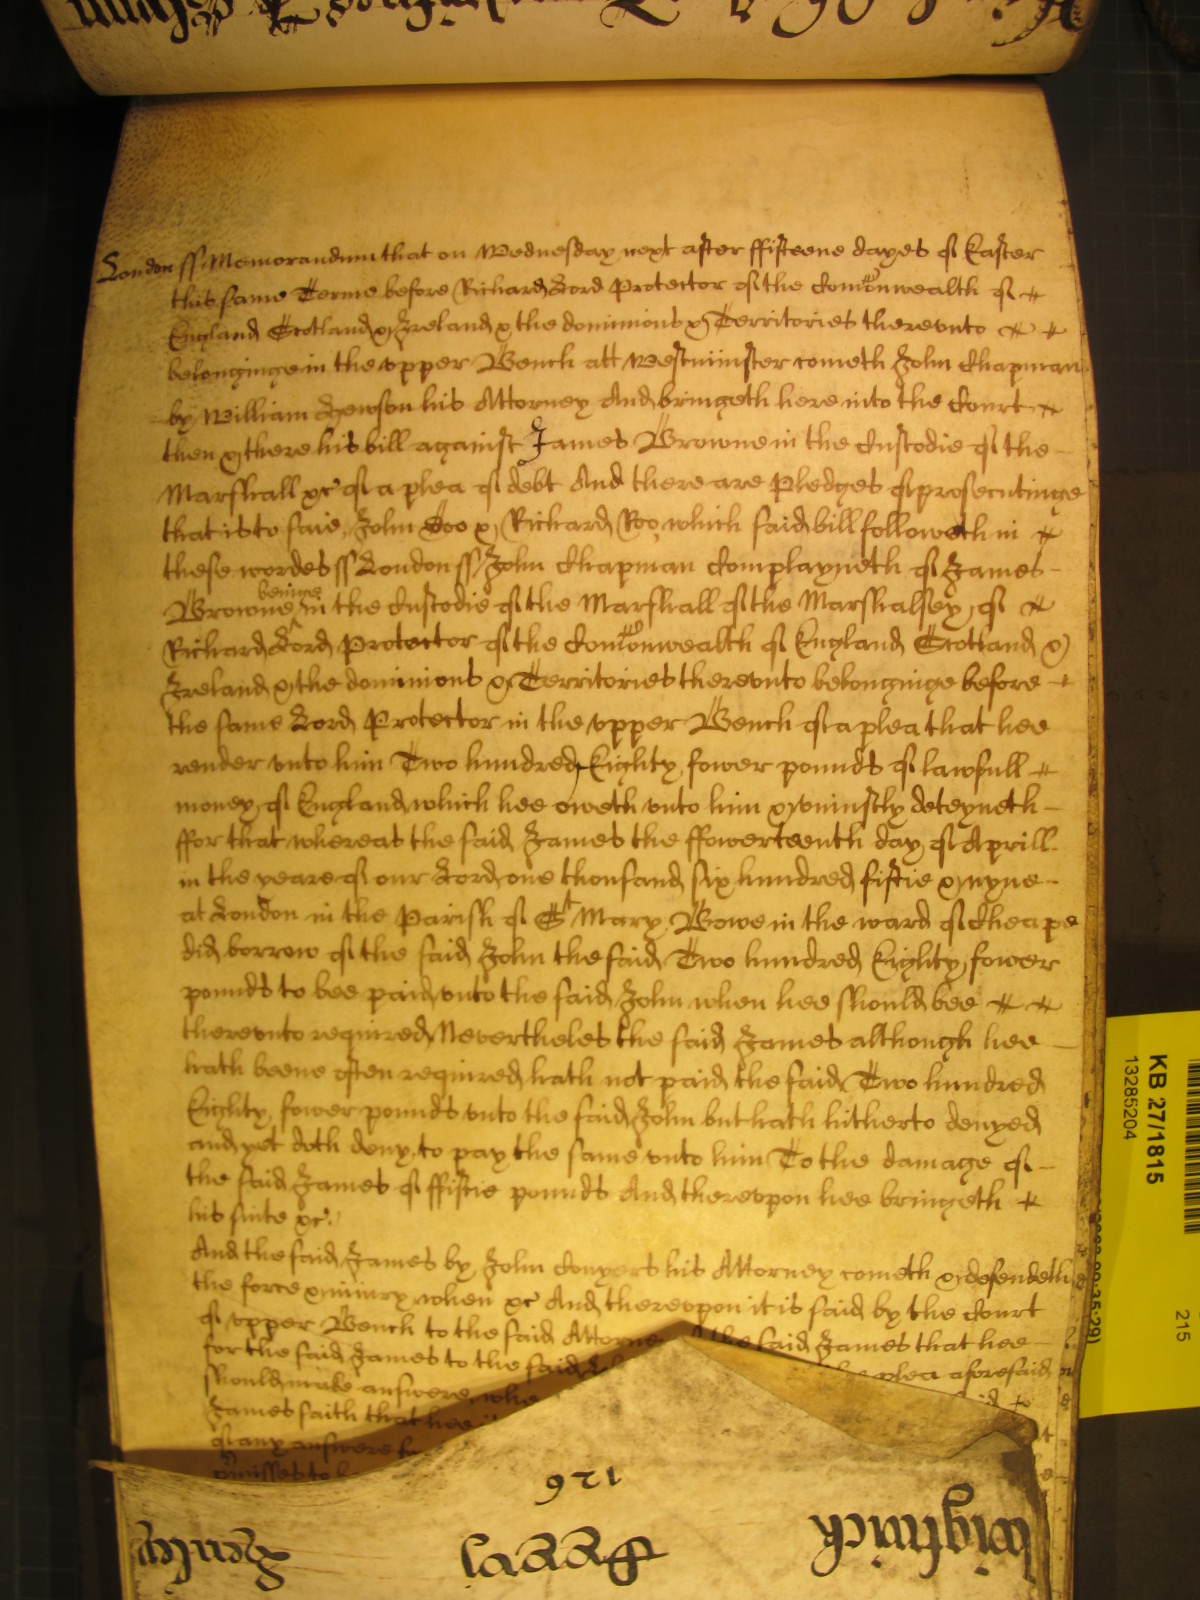 London ss Memorandum that on Wednesday next after ffifteene dayes of Easter
this same Terme before Richard Lord Protector of the Comonwealth of
England Scotland & Ireland & the dominions & Territories therevnto
belonginge in the vpper Bench att Westminster cometh John Chapman
by William Hewson his Attorney And bringeth here into the Court
then & there his bill against James Browne in the Custodie of the
Marshall &c of a plea of debt And there are Pledges of prosecutinge
that is to saie John Doo & Richard Roo which said bill followeth in
these wordes ss London ss John Chapman Complayneth of James
beinge
Browne in the Custodie of the Marshall of the Marshalsey of
Richard Lord Protector of the Comonwealth of England Scotland &
Ireland & the dominions & Territories therevnto belonginge before
the same Lord Protector in the vpper Bench of a plea that hee
render vnto him Two hundred Eighty fower pounds of lawfull
money of England which hee oweth vnto him & vniustly deteyneth
ffor that whereas the said James the ffowerteenth day of Aprill
in the yeare of our Lord one thousand six hundred fiftie & nyne
at London in the Parish of St Mary Bowe in the ward of Cheape
did borrow of the said John the said Two hundred Eighty fower
pounds to bee paid vnto the said John when hee should bee
therevnto required Nevertheles the said James although hee
hath beene often required hath not paid the said Two hundred
Eighty fower pounds vnto the said John but hath hitherto denyed
and yet doth deny to pay the same vnto him To the damage of
the said James of ffiftie pounds And therevpon hee bringeth
his suite &c
And the said James by John Conyers his Attorney cometh & defendeth
the force & iniury when &c And therevpon it is said by the Court
of vpper Bench to the said Attorney the said James that hee
for the said James to the said plea aforesaid
should make answere
James saith that hee
of any answere
p'misses to
126
KB 27/1815
13285204
215